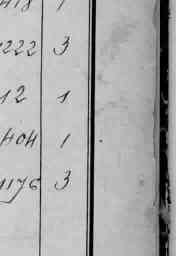 418 1
1222 3
12 1
404 1
1176 3